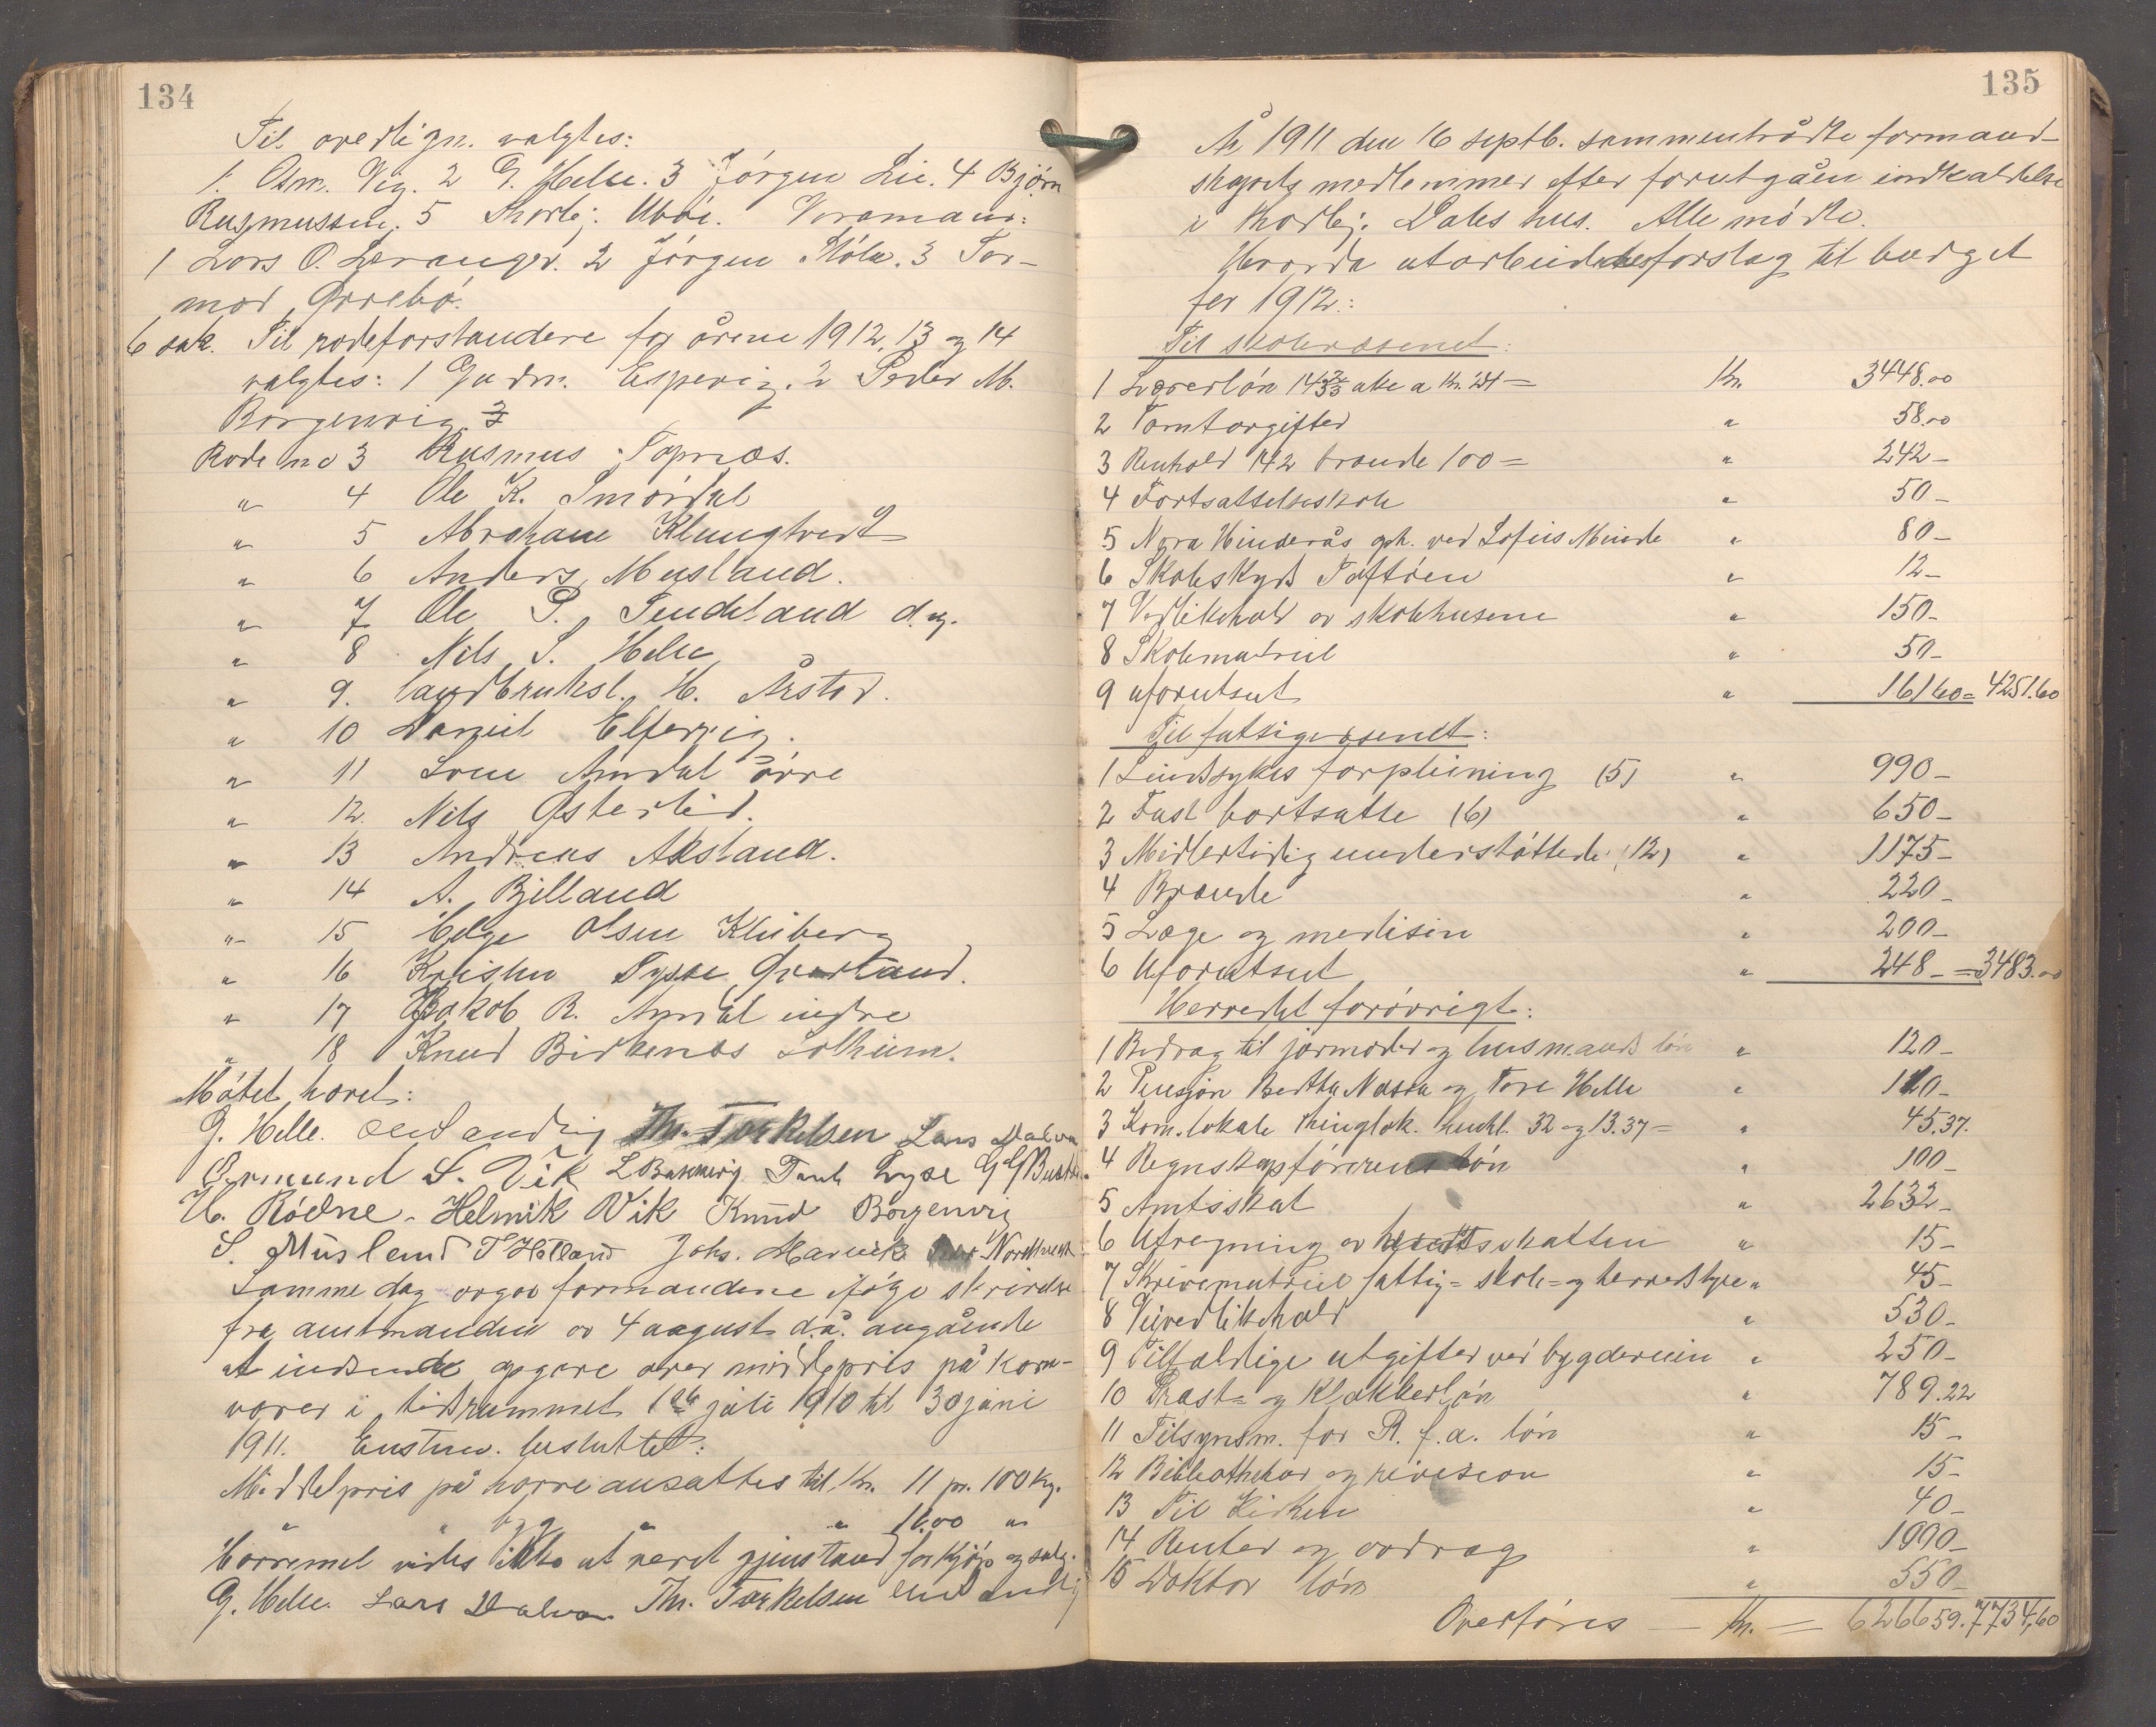 134
Til overlign. valgtes:
1. Osm. Vig. 2 G. Helle. 3 Jörgen Lie. 4 Bjørn
Rasmussen. 5 Thorbj. Uböe. Varamænd:
1 Lars O. Leranger. 2 Jörgen Stöle. 3 Tor-
mod Orrebö.
6 sak. Til rodeforstandere for årene 1912, 13 og 14
valgtes: 1 Gudm. Espevig. 2 Peder M.
Borgenvig
Rode no 3 Rasmus Topnæs.
" 4 Ole K. Smördal
" 5 Abraham Klungtvedt
" 6 Anders Musland.
" 7 Ole P. Tendeland d. y.
" 8 Nils S. Helle
" 9. landbruksl. H. Årstad.
" 10 Daniel Elfervig.
" 11 Love Amdal övre
" 12. Nils Østerlid.
" 13 Andreas Aksland.
" 14 A. Bjelland
" 15 Helge Olsen Kleiberg
" 16 Kristen Tysse Grevland.
" 17 Jakob R. Amdal indre
" 18 Knud Birkenæs Solheim.
Mötet hævet:
G. Helle. Th. Torkelsen Lars Dalva
Osmund S. Vik L Bakkevig Tarl. Lyse G G
H. Rödne. Helmik Vik Knud Borgenvig
S. Musland T Hetland Johs. Marvik
Samme dag avgav formændene ifölge skrivelse
fra amtmanden av 4 august d.å. angående
at indsende opgave over middelpris på korn-
varer i tidsrummet 1ste juli 1910 til 30 juni
1911. Enstem. besluttet:
Middelpris på havre ansattes til kr. 11 pr. 100 kg.
" " byg " " 11.00 "
Havremel vides ikke at været gjenstand for kjöp og salg.
G. Helle. Lars Dalva Th. Torkelsen
135
År 1911 den 16 septb. sammentrådte formand-
skapets medlemmer efter forutgåen indkaldelse
i Thorbj. Dales hus. Alle mödte.
Hvorda utarbeidedes forslag til budget
for 1912:
Til skolevæsenet:
1 Lærerlön 14 uke a kr. 24 = Kr. 3448.00
2 Tomtavgifter " 58.00
3 Renhold 142 brænde 100 = " 242 -
4 Fortsættelsesskole " 50 -
5 Nora Hinderås oph. ved Sofies Minde " 80 -
6 Skoleskyds Toftöen " 12 -
7 Vedlikehold av skolehusene " 150 -
8 Skolemateriel " 50 -
9 uforutset " 161 60 = 4251.60
Til fattigvæsenet:
1 Sindssykes forpleining (5) " 990 -
2 Fast bortsatte (6) " 650 -
3 Midlertidig understöttede (12) " 1175 -
4 Brænde " 220 -
5 Læge og medisin " 200 -
6 Uforutset " 248 - = 3483.00
Herredet forövrigt:
1 Bidrag til jormoder og husmands lön " 120 -
2 Pensjon Bertha Næssa og Tore Helle " 110 -
3 Kom. lokale thinglok. henhl. 32 og 13.37 = " 45.37.
4 Regnskapsförerens lön " 100 -
5 Amtsskat " 2632 -
6 Utregning av skatten " 15 -
7 Skrivemateriel fattig= skole= og herredstyre " 45 -
8 Veivedlikehold " 530 -
9 Tilfældige utgifter ved bygdeveien " 250 -
10 Præst= og Klokkerlön " 789.22
11 Tilsynsm. for R. f. a. lön " 15 -
12 Bibliothekar og revision " 15 -
13 Til Kirken " 40 -
14 Renter og avdrag " 1000 -
15 Doktor lön " 550 -
Overföres — Kr. = 626659. 7734,60